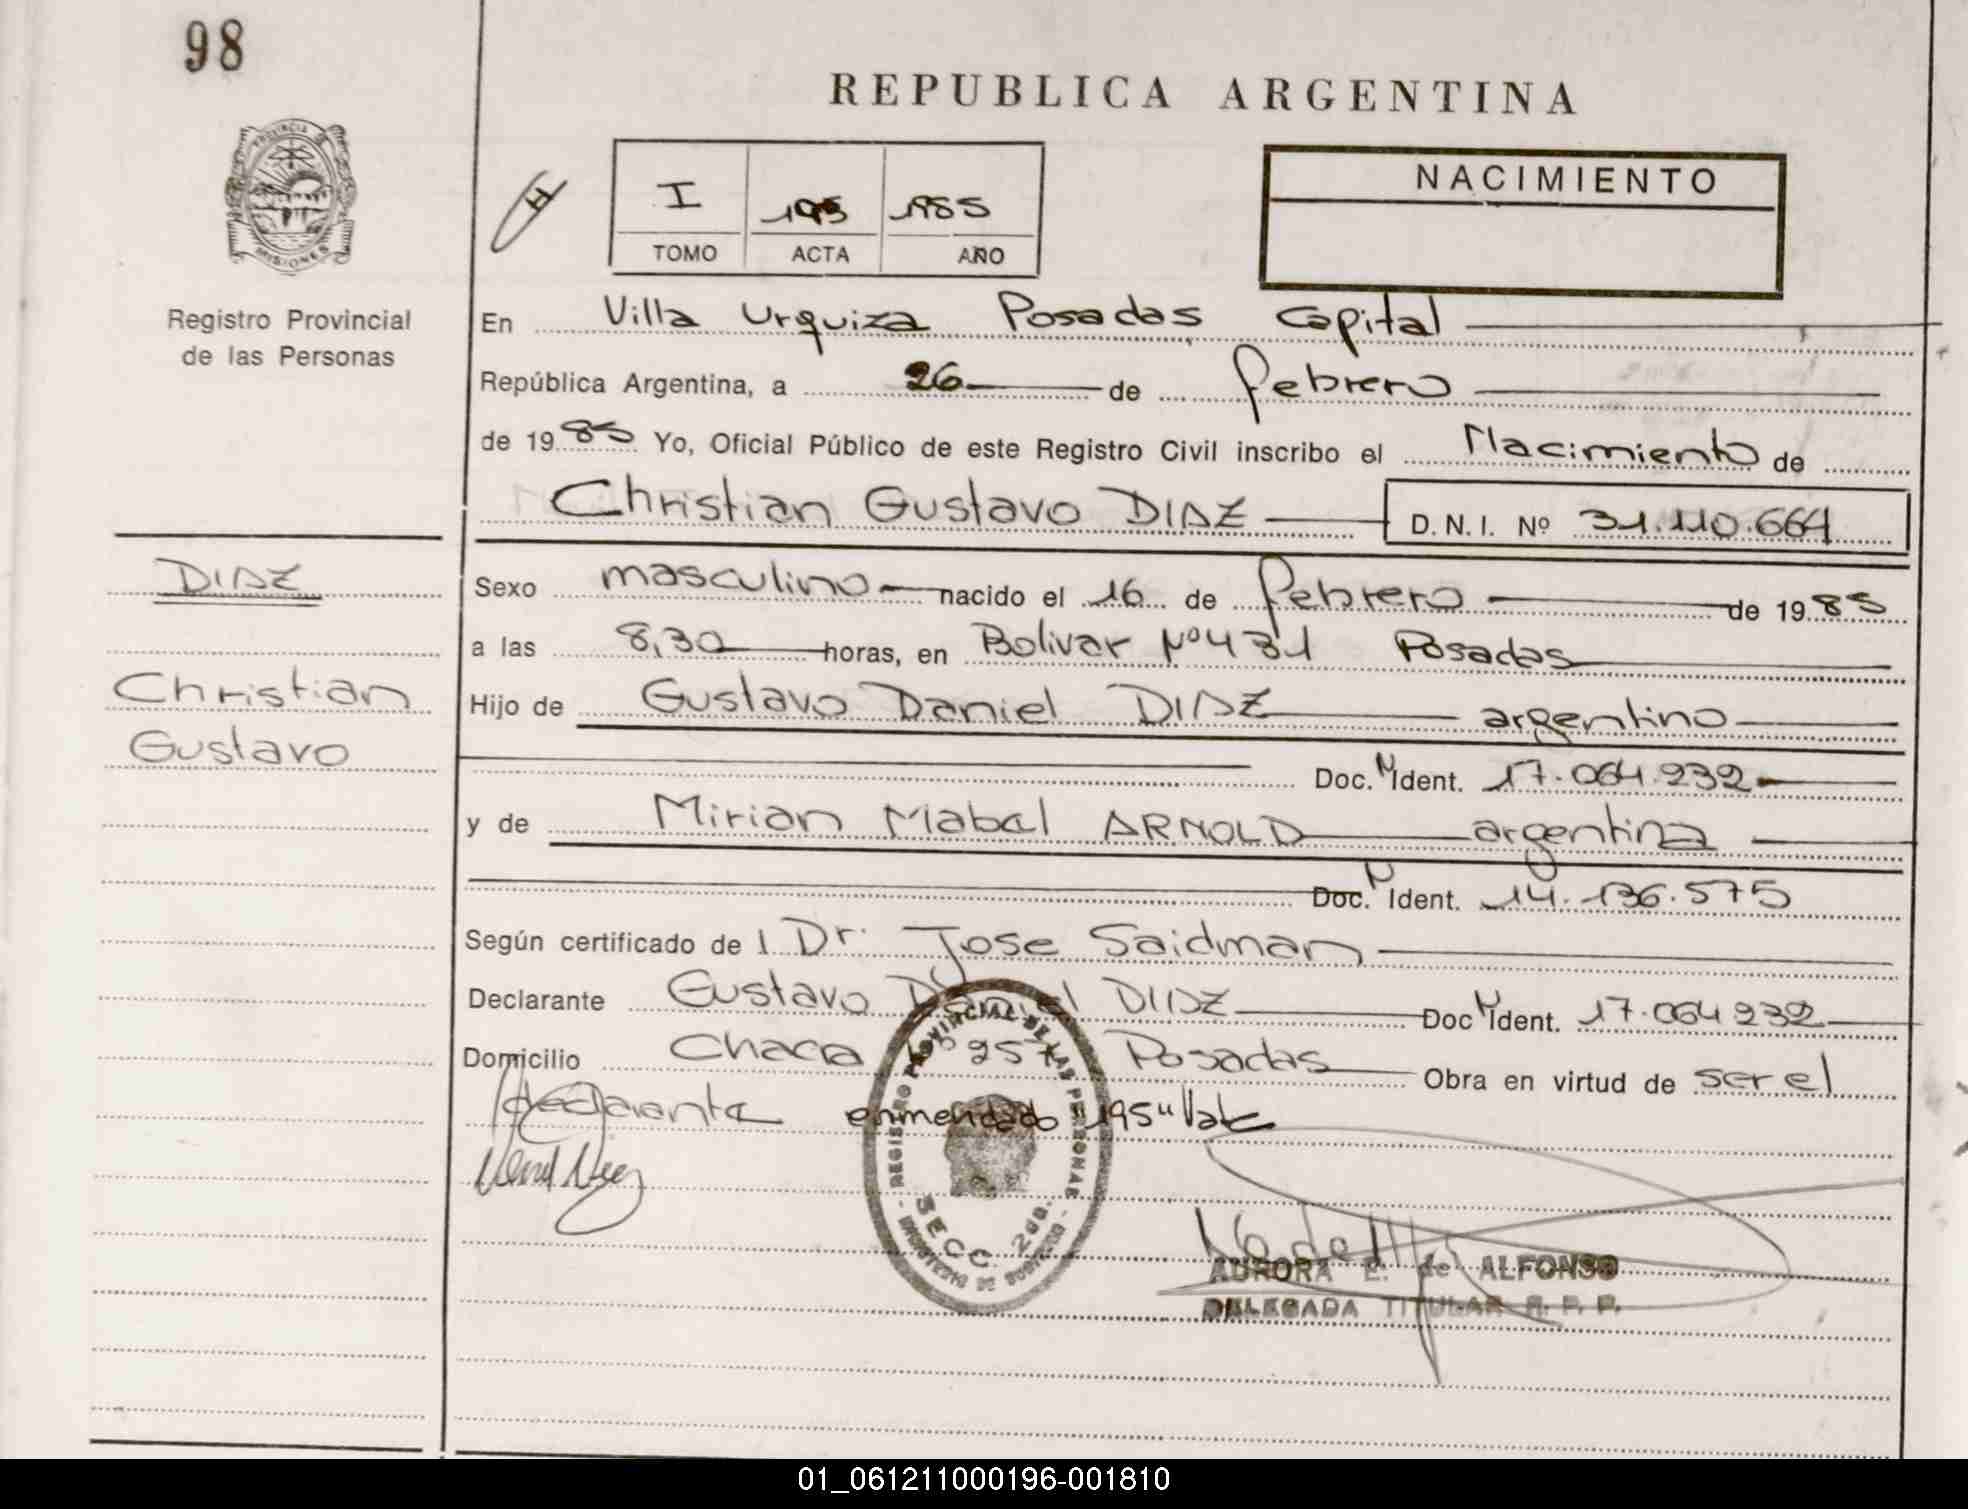 98
REPUBLICA ARGENTINA
PROVINCIA DE
MISIONES
Registro Provincial
de las Personas
H
I 195 1985
TOMO ACTA AÑO
NACIMIENTO
En Villa Urquiza Posadas Capital
República Argentina, a 26 de febrero
de 1985 Yo, Oficial Público de este Registro Civil inscribo el Nacimiento de
Christian Gustavo DIAZ D.N.I. Nº 31.110.664
DIAZ
Christian
Gustavo
Sexo masculino nacido el 16 de febrero de 1985
a las 8,30 horas, en Bolivar Nº 431 Posadas
Hijo de Gustavo Daniel DIAZ argentino
Doc. N Ident. 17.064.232
y de Mirian Mabel ARNOLD argentina
Doc. N Ident. 14.136.575
Según certificado de l Dr. Jose Saidman
Declarante Gustavo Daniel DIAZ Doc N Ident. 17.064.232
Domicilio Chacra Posadas Obra en virtud de ser el
declarante enmendado "195" Vale
REGISTRO PROVINCIAL DE LAS PERSONAS
SECC. 2da.
MINISTERIO DE
AURORA E. de ALFONSO
DELEGADA TITULAR R. P. P.
01_061211000196-001810